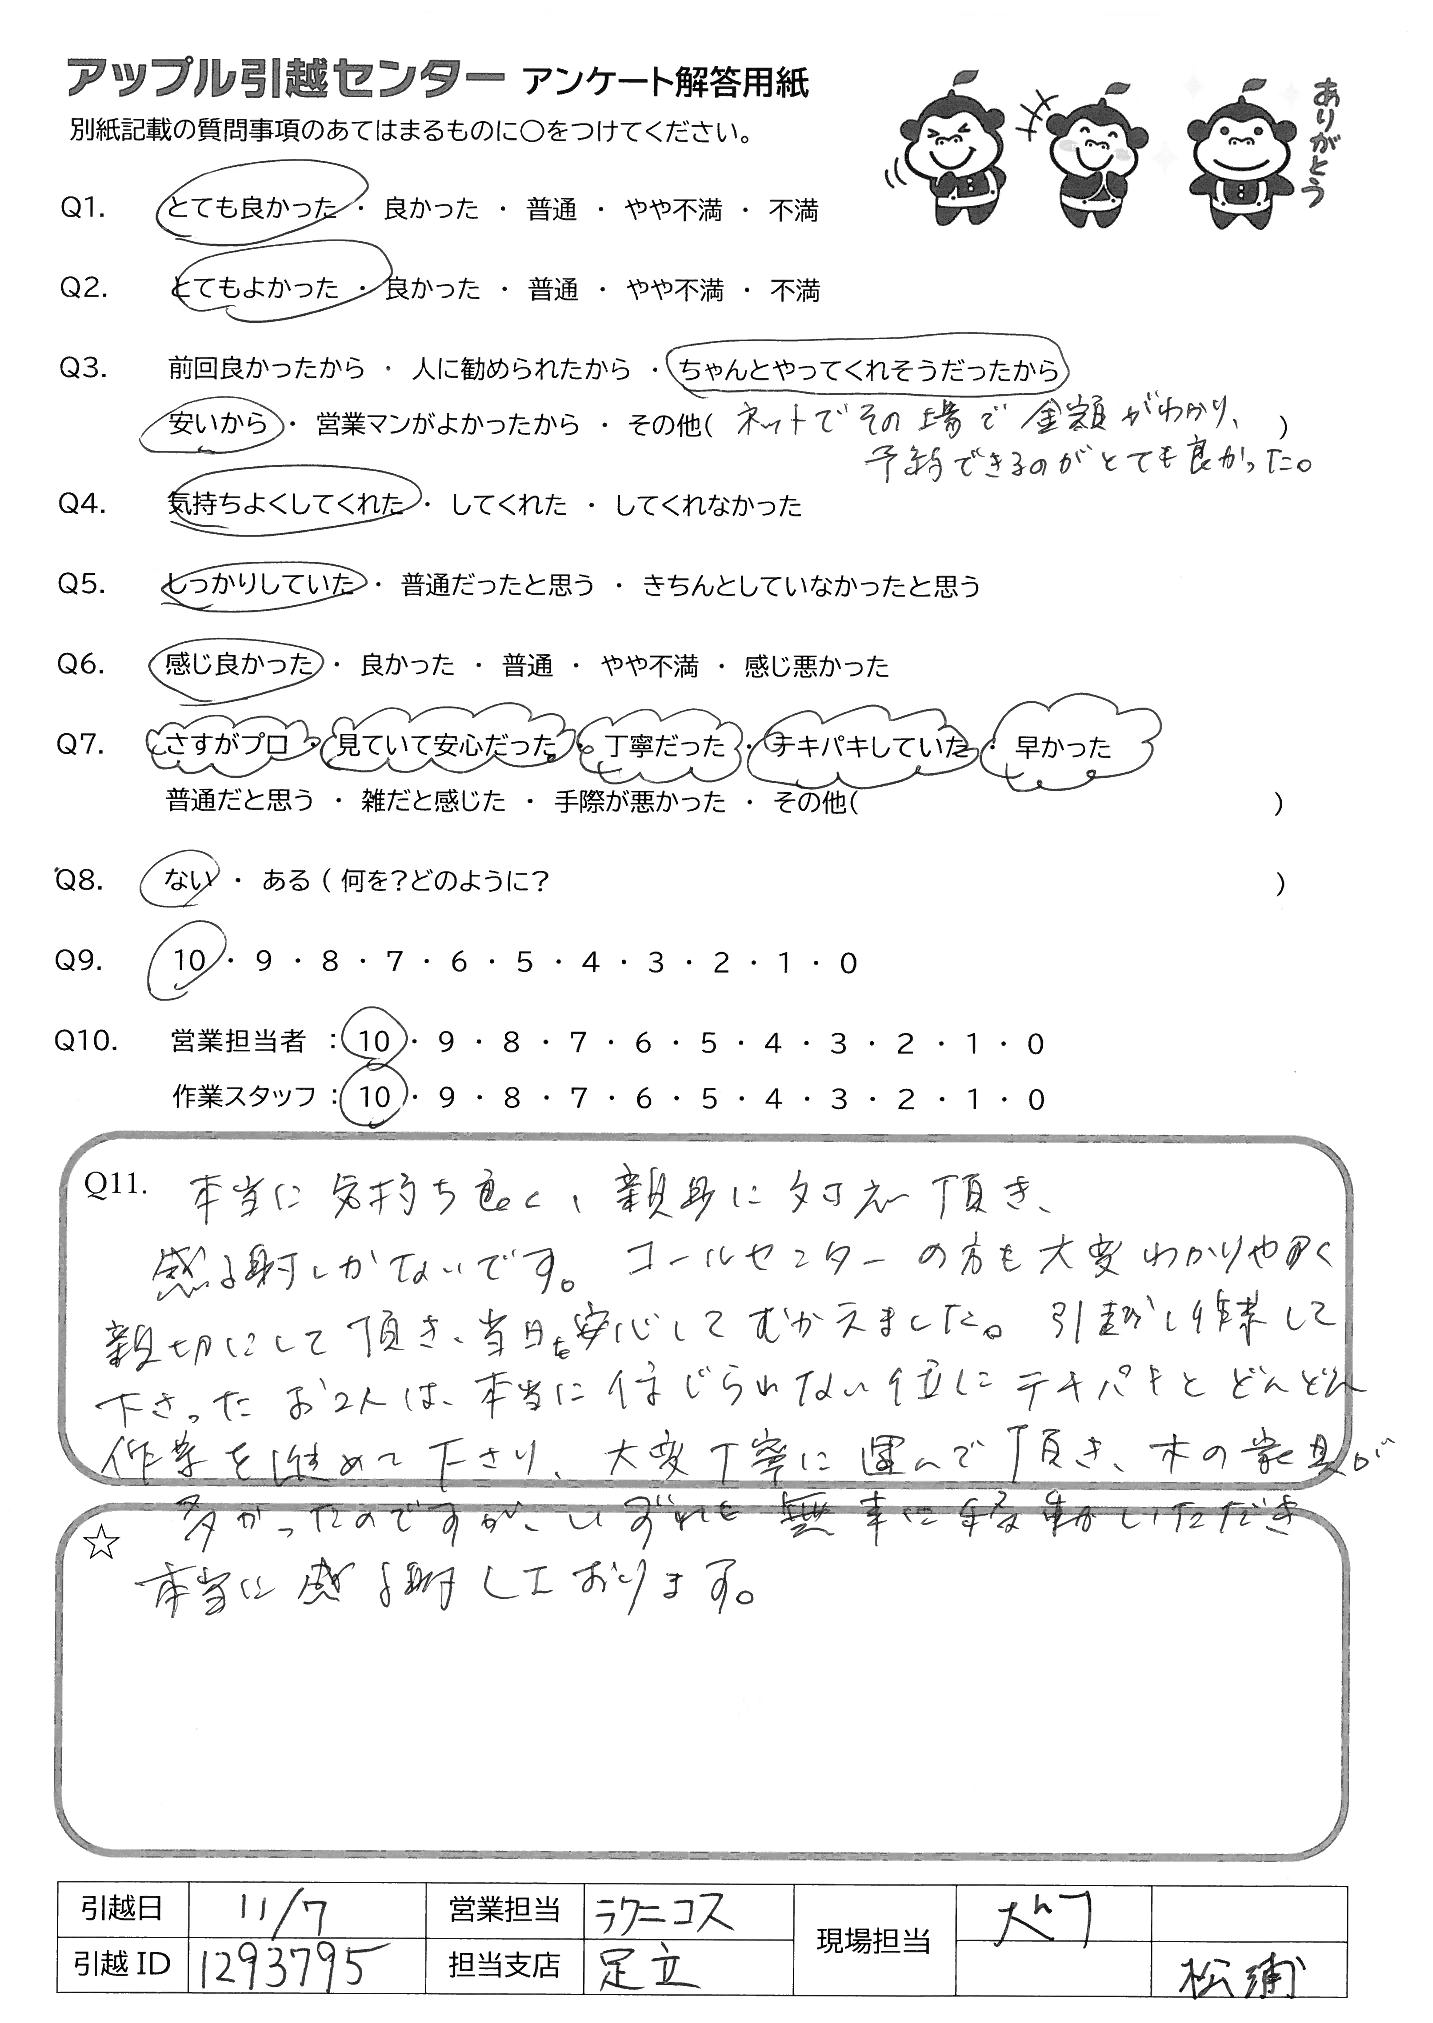 アップル引越センター アンケート解答用紙
別紙記載の質問事項のあてはまるものに○をつけてください。
ありがとう
Q1. とても良かった ・ 良かった ・ 普通 ・ やや不満 ・ 不満
Q2. とてもよかった ・ 良かった ・ 普通 ・ やや不満 ・ 不満
Q3. 前回良かったから ・ 人に勧められたから ・ ちゃんとやってくれそうだったから
安いから ・ 営業マンがよかったから ・ その他( ネットでその場で金額がわかり、 )
予約できるのがとても良かった。
Q4. 気持ちよくしてくれた ・ してくれた ・ してくれなかった
Q5. しっかりしていた ・ 普通だったと思う ・ きちんとしていなかったと思う
Q6. 感じ良かった ・ 良かった ・ 普通 ・ やや不満 ・ 感じ悪かった
Q7. さすがプロ ・ 見ていて安心だった ・ 丁寧だった ・ テキパキしていた ・ 早かった
普通だと思う ・ 雑だと感じた ・ 手際が悪かった ・ その他( )
Q8. ない ・ ある ( 何を?どのように? )
Q9. 10 ・ 9 ・ 8 ・ 7 ・ 6 ・ 5 ・ 4 ・ 3 ・ 2 ・ 1 ・ 0
Q10. 営業担当者 : 10 ・ 9 ・ 8 ・ 7 ・ 6 ・ 5 ・ 4 ・ 3 ・ 2 ・ 1 ・ 0
作業スタッフ : 10 ・ 9 ・ 8 ・ 7 ・ 6 ・ 5 ・ 4 ・ 3 ・ 2 ・ 1 ・ 0
Q11. 本当に気持ち良く、親身に対応頂き、
感謝しかないです。コールセンターの方も大変わかりやすく
親切にして頂き、当日も安心してむかえました。引越し作業して
下さったお2人は、本当に信じられない位にテキパキとどんどん
作業を進めて下さり、大変丁寧に運んで頂き、木の家具が
☆ 多かったのですが、いずれも無事に移動いただき
本当に感謝しております。
引越日 11/7 営業担当 ラクニコス 現場担当
引越ID 1293795 担当支店 足立 松浦